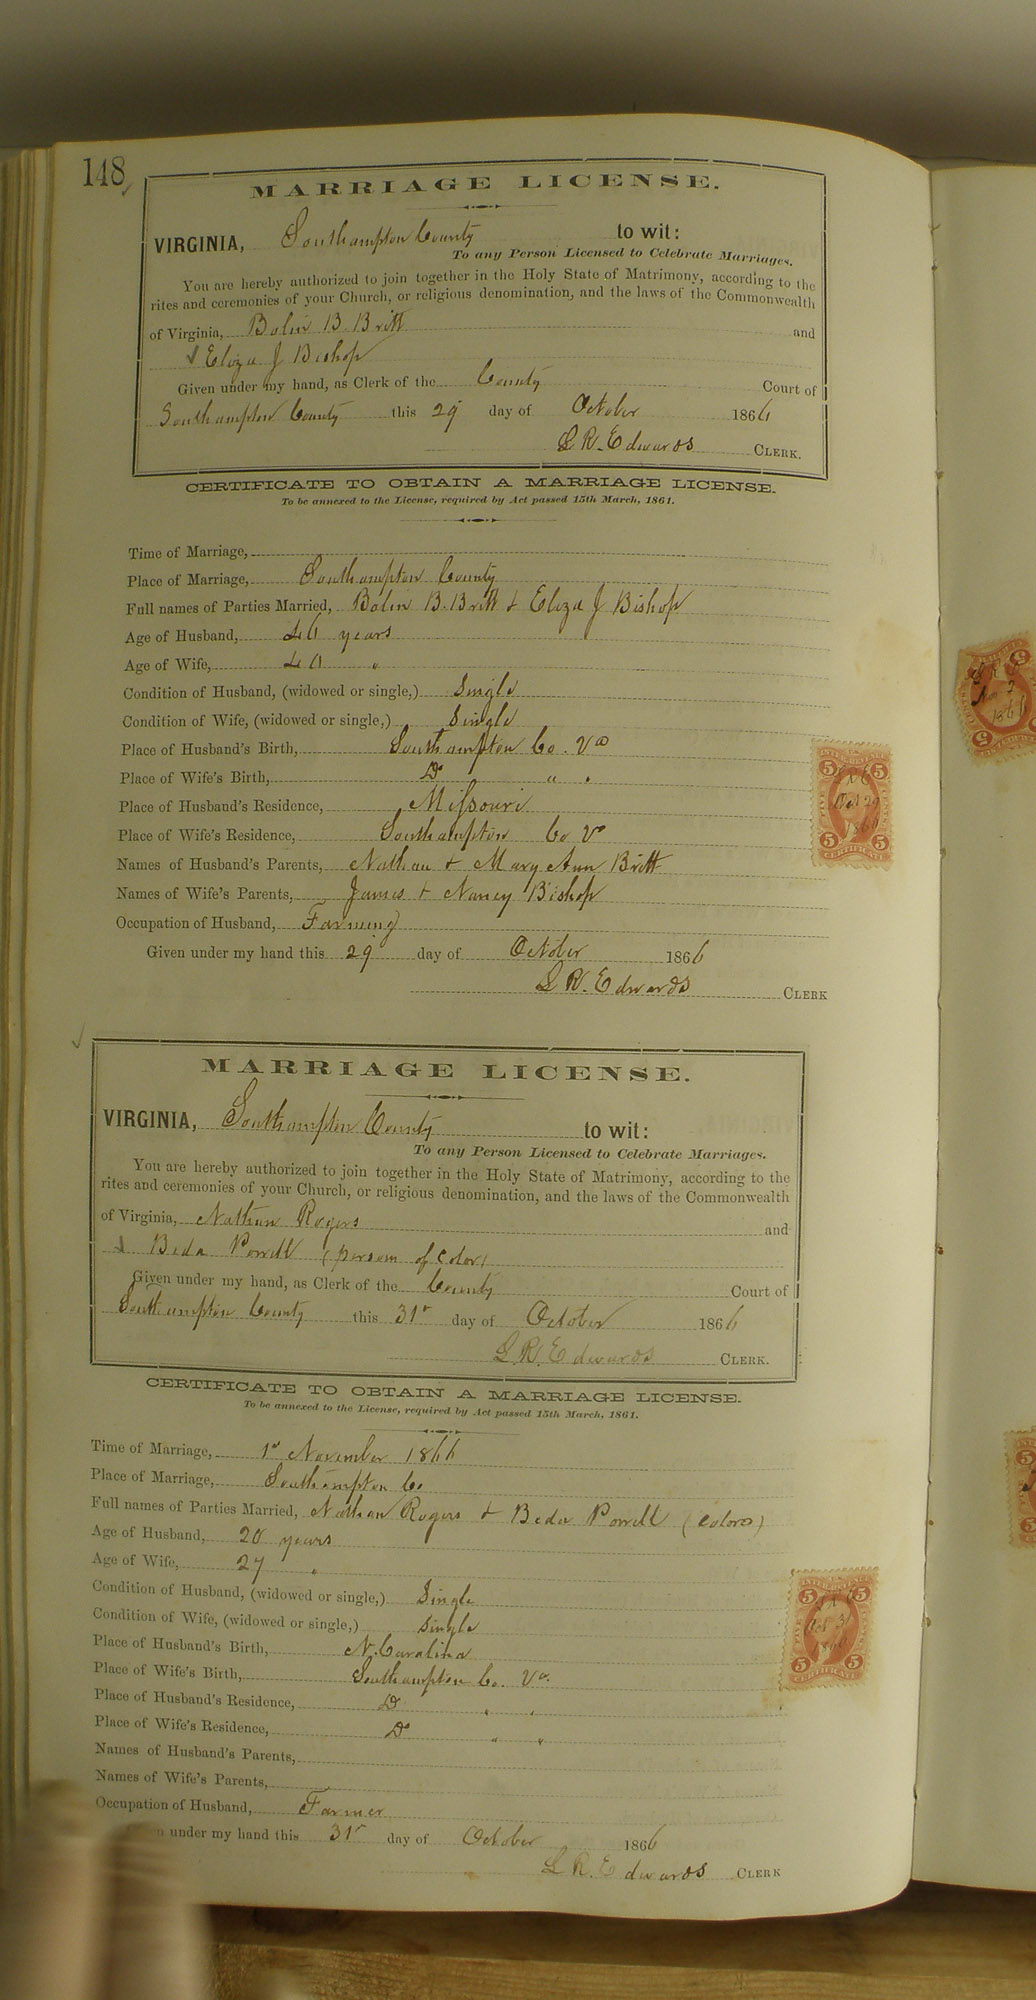 148
MARRIAGE LICENSE.
VIRGINIA, Southampton County to wit:
To any Person Licensed to Celebrate Marriages.
You are hereby authorized to join together in the Holy State of Matrimony, according to the
rites and ceremonies of your Church, or religious denomination, and the laws of the Commonwealth
of Virginia, Bolin B. Britt and
Eliza J Bishop
Given under my hand, as Clerk of the County Court of
Southampton County this 29 day of October 1866
L R. Edwards CLERK.
CERTIFICATE TO OBTAIN A MARRIAGE LICENSE.
To be annexed to the License, required by Act passed 15th March, 1861.
Time of Marriage,
Place of Marriage, Southampton County
Full names of Parties Married, Bolin B. Britt & Eliza J Bishop
Age of Husband, 46 years
Age of Wife, 40 "
Condition of Husband, (widowed or single,) Single
Condition of Wife, (widowed or single,) Single
Place of Husband's Birth, Southampton Co. Va
Place of Wife's Birth, Do " "
Place of Husband's Residence, Missouri
Place of Wife's Residence, Southampton Co Va
Names of Husband's Parents, Nathan & Mary Ann Britt
Names of Wife's Parents, James & Nancy Bishop
Occupation of Husband, Farming
Given under my hand this 29 day of October 1866
L R. Edwards CLERK
5 5
Oct 29
1866
5 5
CERTIFICATE
MARRIAGE LICENSE.
VIRGINIA, Southampton County to wit:
To any Person Licensed to Celebrate Marriages.
You are hereby authorized to join together in the Holy State of Matrimony, according to the
rites and ceremonies of your Church, or religious denomination, and the laws of the Commonwealth
of Virginia, Nathan Rogers and
Beda Powell (person of color)
Given under my hand, as Clerk of the County Court of
Southampton County this 31st day of October 1866
L R. Edwards CLERK.
CERTIFICATE TO OBTAIN A MARRIAGE LICENSE.
To be annexed to the License, required by Act passed 15th March, 1861.
Time of Marriage, 1st November 1866
Place of Marriage, Southampton Co
Full names of Parties Married, Nathan Rogers & Beda Powell (Colored)
Age of Husband, 20 years
Age of Wife, 27 "
Condition of Husband, (widowed or single,) Single
Condition of Wife, (widowed or single,) Single
Place of Husband's Birth, N. Carolina
Place of Wife's Birth, Southampton Co. Va.
Place of Husband's Residence, Do " "
Place of Wife's Residence, Do " "
Names of Husband's Parents,
Names of Wife's Parents,
Occupation of Husband, Farmer
under my hand this 31st day of October 1866
L R. Edwards CLERK
5 5
Oct 31
1866
5 5
CERTIFICATE